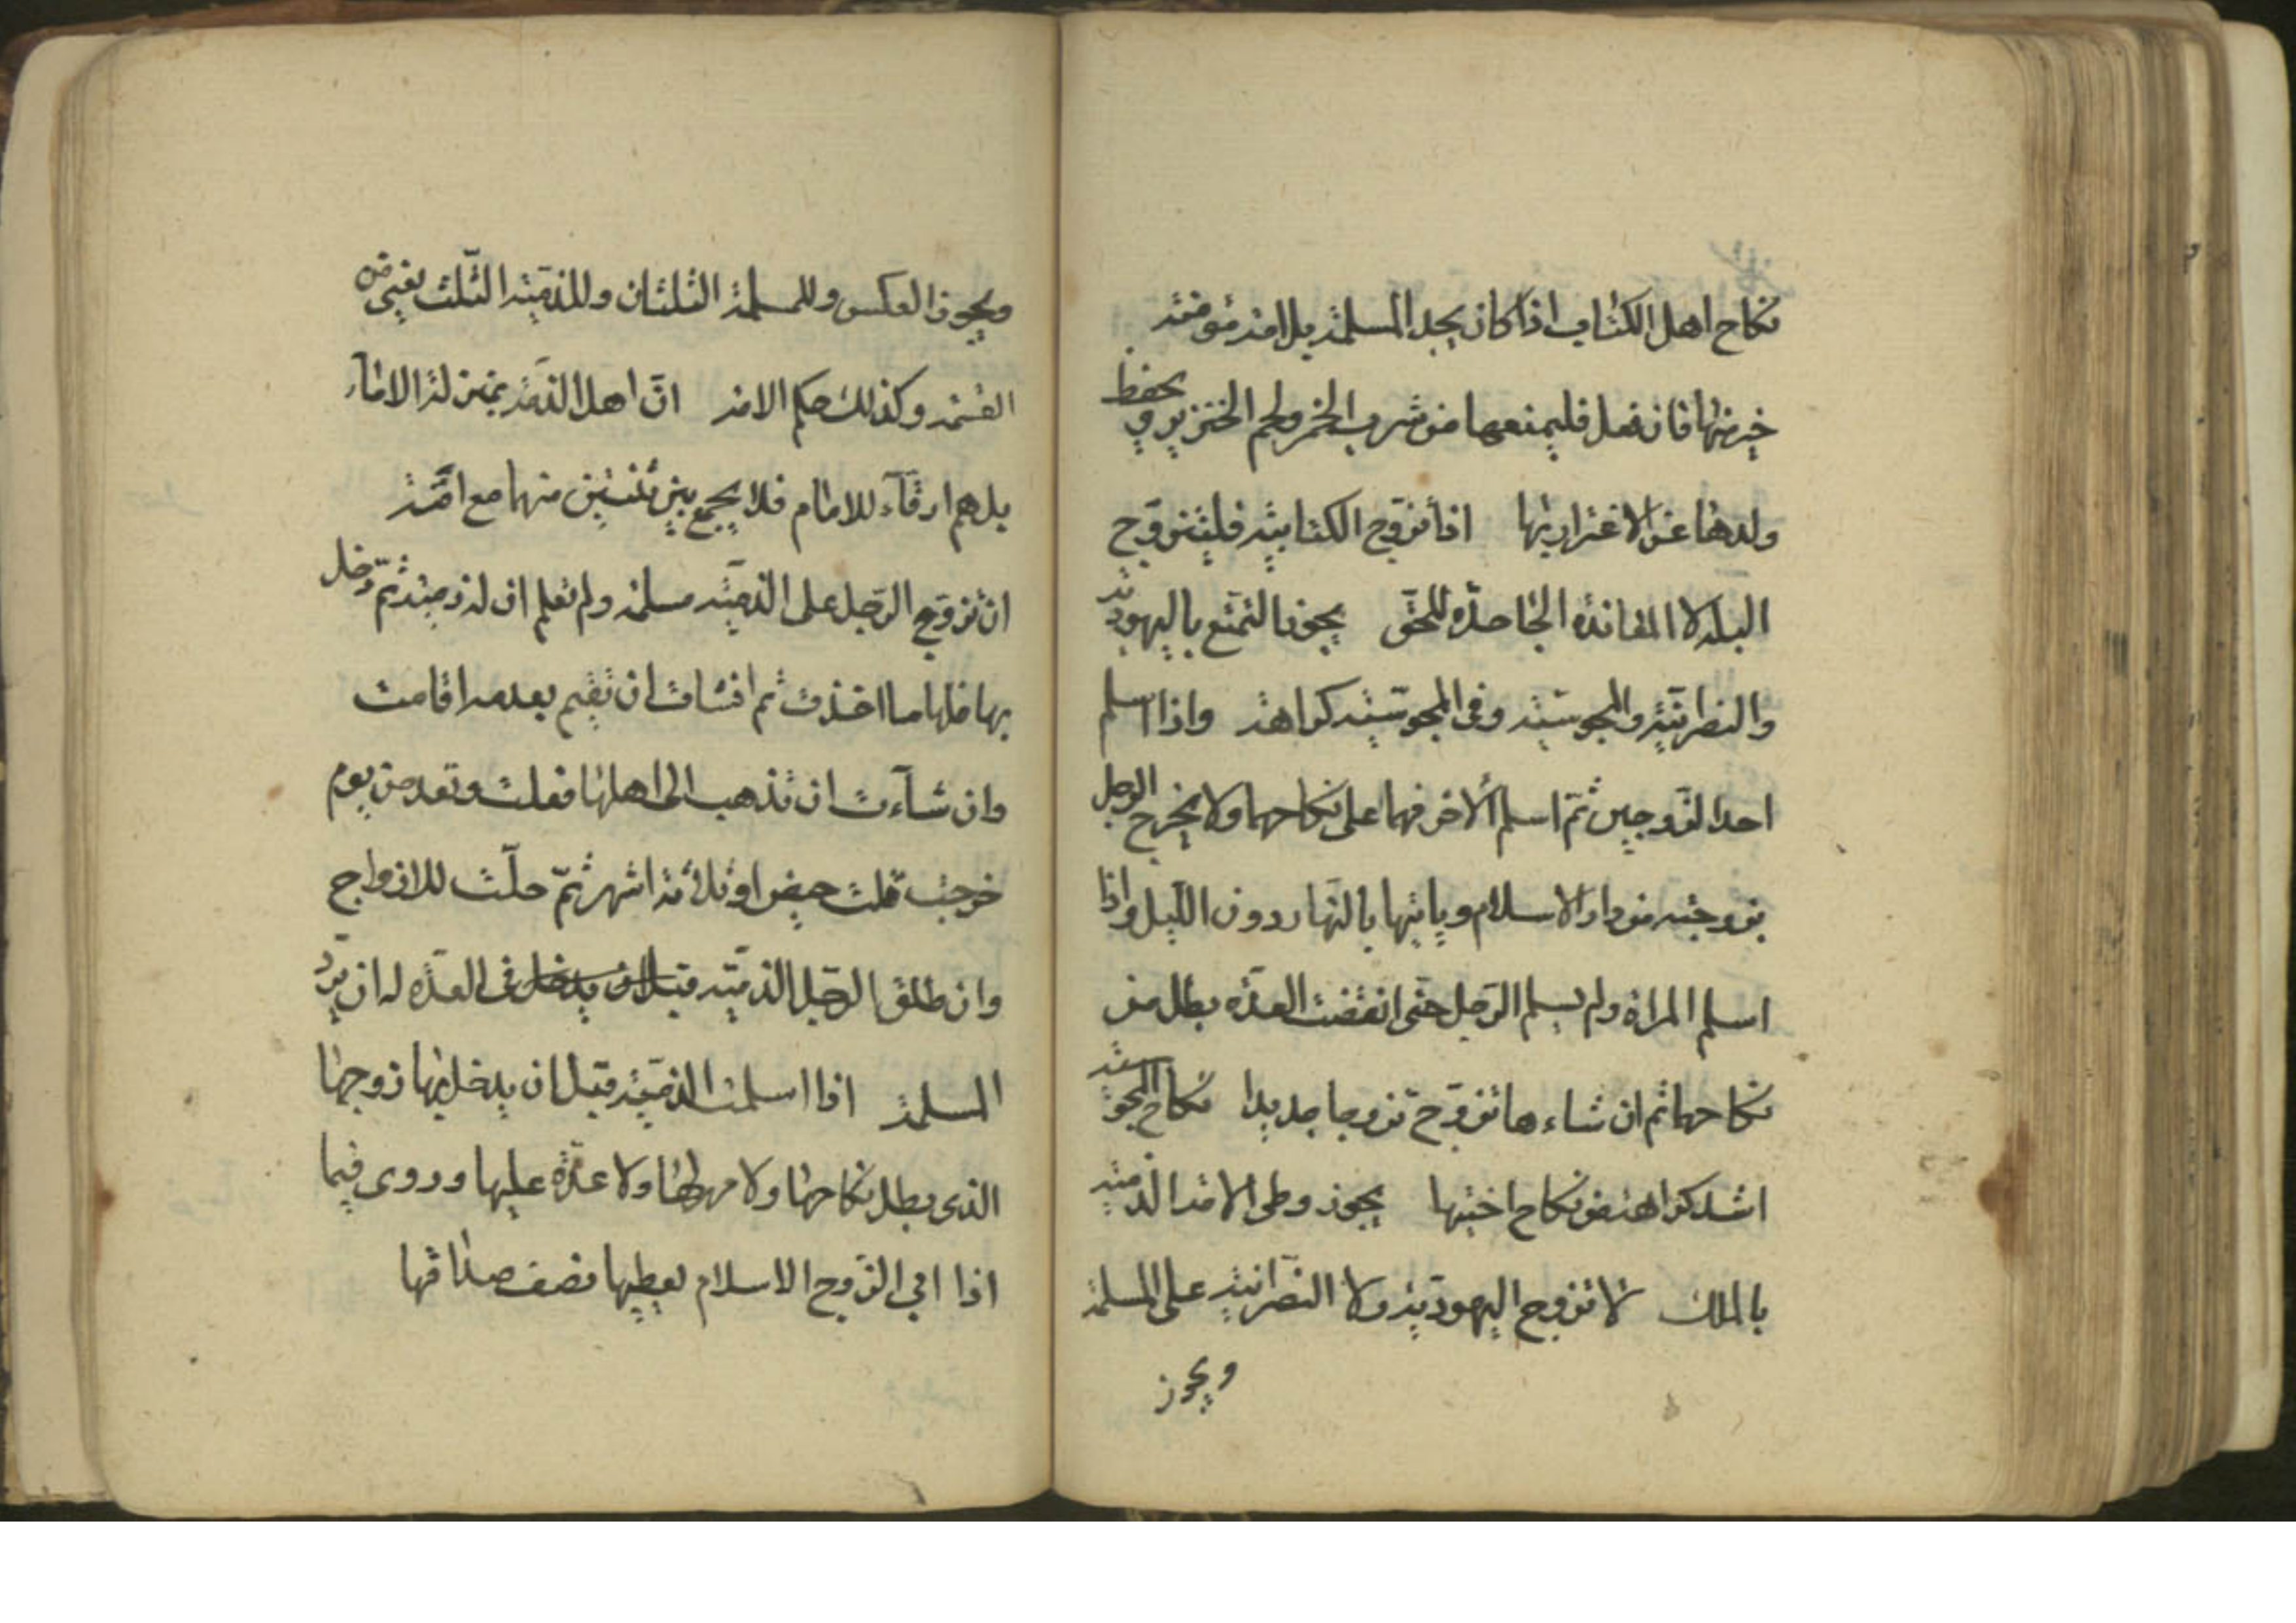 نكاح اهل الكتاب اذا كان يجد المسلمة بل امة مؤمنة
خير منها فان فعل فليمنعها من شرب الخمر ولحم الخنزير و يحفظ
ولدها عن الاغترار بها اذا تزوج الكتابية فليتزوج
البله لا المعاندة الجاحدة للحق يجوز التمتع باليهودية
والنصرانية والمجوسية وفى المجوسية كراهة واذا اسلم
احد الزوجين ثم اسلم الاخر فهما على نكاحهما ولا يخرج الرجل
بزوجته من دار الاسلام وياتيها بالنهار دون الليل واذا
اسلم المراة ولم يسلم الرجل حتى انقضت العدة بطل من
نكاحهما ثم ان شاء ها تزوج تزوجا جديدا نكاح المجوسية
اشد كراهة من نكاح اختها يجوز وطى الامة الذمية
بالملك لا تزوج اليهودية ولا النصرانية على المسلمة
ويجوز
ويجوز العكس وللمسلمة الثلثان وللذمية الثلث يعنى من
القسمة وكذلك حكم الامة ان اهل الذمة بمنزلة الاماء
بل هم ارقاء للامام فلا يجمع بين ثنتين منهما مع امة
ان تزوج الرجل على الذمية مسلمة ولم تعلم ان له ذمية ثم دخل
بها فلها ما اخذت ثم ان شات ان تقيم بعد معه اقامت
وان شاءت ان تذهب الى اهلها فعلت وتعد من يوم
خرجت ثلث حيض او ثلاثة اشهر ثم حلت للازواج
وان طلق الرجل الذمية قبل ان يدخل فى العدة له ان يرد
المسلمة اذا اسلمت الذمية قبل ان يدخل بها زوجها
الذى بطل نكاحها ولا مهر لها ولا عدة عليها وروى فيما
اذا ابى الزوج الاسلام يعطيها نصف صداقها